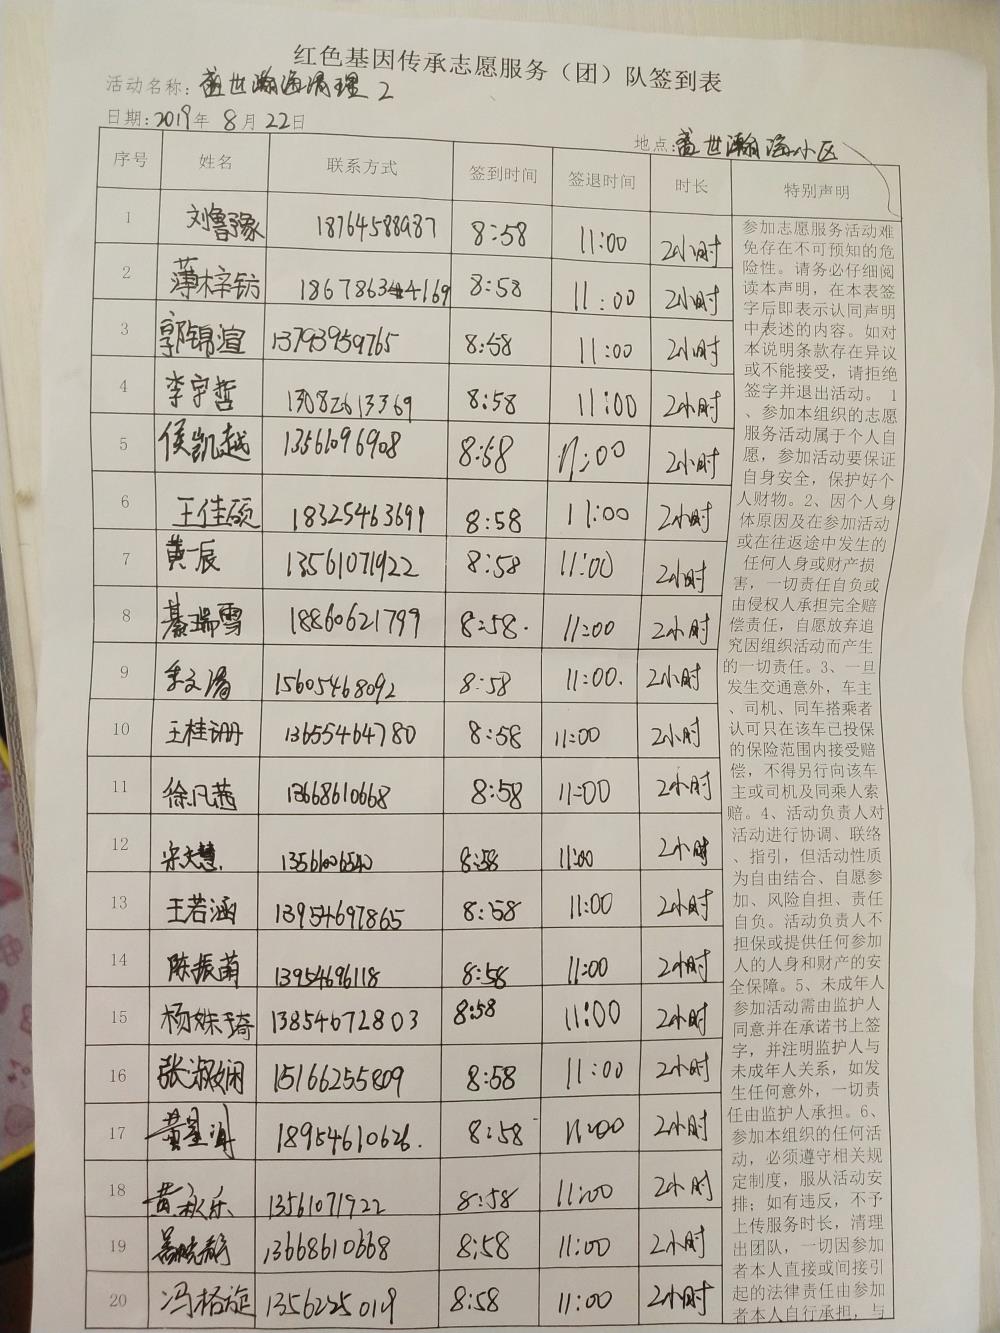 红色基因传承志愿服务（团）队签到表
活动名称：盖世瀚海清理2
日期：2019年8月22日
地点：盖世瀚海小区
序号 姓名 联系方式 签到时间 签退时间 时长 特别声明
1 刘鲁豫 18764588987 8:58 11:00 2小时
2 薄梓钫 18678634169 8:58 11:00 2小时
3 郭锦渲 13793959765 8:58 11:00 2小时
4 李宇哲 13082613369 8:58 11:00 2小时
5 侯凯越 13561096908 8:58 11:00 2小时
6 王佳硕 18325463699 8:58 11:00 2小时
7 黄一辰 13561071922 8:58 11:00 2小时
8 綦瑞雪 18860621799 8:58. 11:00 2小时
9 15605468092 8:58 11:00. 2小时
10 王桂珊 13655464780 8:58 11:00 2小时
11 徐凡茜 13668610668 8:58 11:00 2小时
12 宋文慧 13561006540 8:58 11:00 2小时
13 王若涵 13954697865 8:58 11:00 2小时
14 陈振菌 13954696118 8:58 11:00 2小时
15 杨姝琦 13854672803 8:58 11:00 2小时
16 张淑娴 15166255809 8:58 11:00 2小时
17 18954610626. 8:58 11:00 2小时
18 黄永乐 13561071922 8:58 11:00 2小时
19 13668610668 8:58 11:00 2小时
20 冯格旋 1356225019 8:58 11:00 2小时
参加志愿服务活动难
免存在不可预知的危
险性。请务必仔细阅
读本声明，在本表签
字后即表示认同声明
中表述的内容。如对
本说明条款存在异议
或不能接受，请拒绝
签字并退出活动。 1
、参加本组织的志愿
服务活动属于个人自
愿，参加活动要保证
自身安全，保护好个
人财物。2、因个人身
体原因及在参加活动
或在往返途中发生的
任何人身或财产损
害，一切责任自负或
由侵权人承担完全赔
偿责任，自愿放弃追
究因组织活动而产生
的一切责任。3、一旦
发生交通意外，车主
、司机、同车搭乘者
认可只在该车已投保
的保险范围内接受赔
偿，不得另行向该车
主或司机及同乘人索
赔。4、活动负责人对
活动进行协调、联络
、指引，但活动性质
为自由结合、自愿参
加、风险自担、责任
自负。活动负责人不
担保或提供任何参加
人的人身和财产的安
全保障。5、未成年人
参加活动需由监护人
同意并在承诺书上签
字，并注明监护人与
未成年人关系，如发
生任何意外，一切责
任由监护人承担。6、
参加本组织的任何活
动，必须遵守相关规
定制度，服从活动安
排；如有违反，不予
上传服务时长，清理
出团队，一切因参加
者本人直接或间接引
起的法律责任由参加
者本人自行承担，与